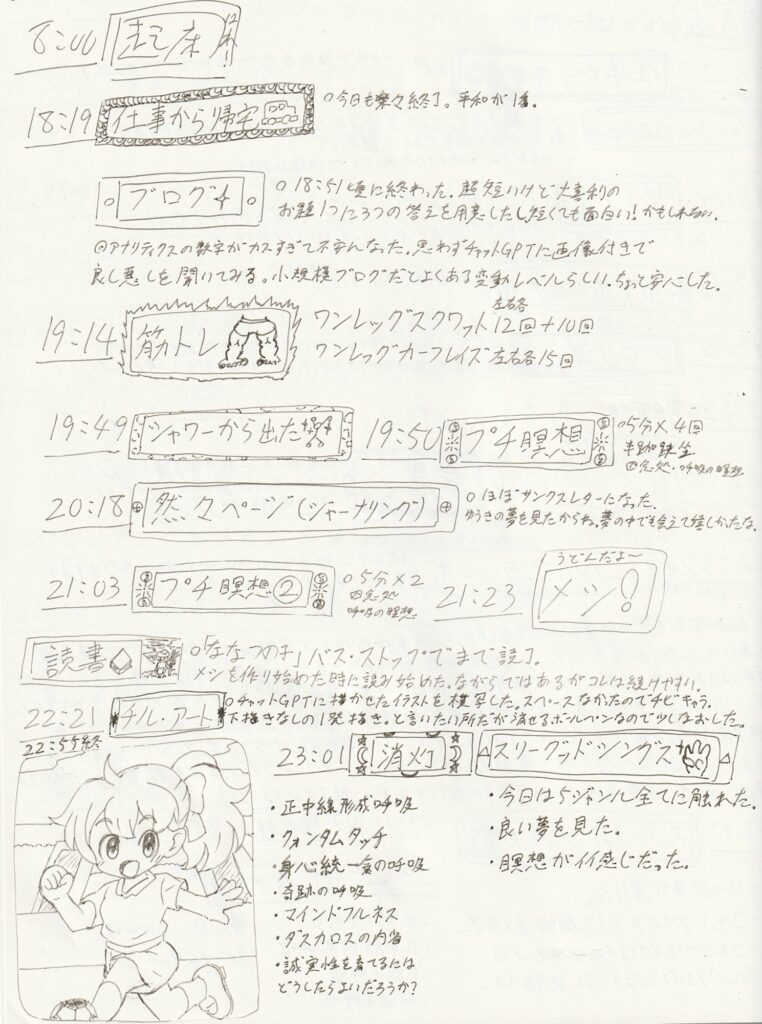 6:00 起床
18:19 仕事から帰宅
○今日も楽々終了。平和が1番。
ブログ
○18:51頃に終わった。超短いけど大喜利の
お題1つに3つの答えを用意したし短くても面白い!かもしれない。
@アナリティクスの数字がカスすぎて不安んなった。思わずチャットGPTに画像付きで
良し悪しを聞いてみる。小規模ブログだとよくある変動レベルらしい。ちょっと安心した。
19:14 筋トレ
左右各
ワンレッグスクワット12回+10回
ワンレッグカーフレイズ 左右各15回
19:49 シャワーから出た
19:50 プチ瞑想
○5分×4回
半跏趺坐
四念処・呼吸の瞑想
20:18 然々ページ(ジャーナリング)
○ほぼサンクスレターになった。
ゆうきの夢を見たからね。夢の中でも会えて嬉しかったな。
21:03 プチ瞑想②
○5分×2
四念処
呼吸の瞑想
21:23 うどんだよ〜
メシ!
読書
○「ななつのこ」バス・ストップでまで読了。
メシを作り始めた時に読み始めた。ながらではあるがコレは続けやすい。
22:21 チル・アート
○チャットGPTに描かせたイラストを模写した。スペースなかったのでチビキャラ。
下描きなしの1発描き。と言いたい所だが消せるボールペンなので少しなおした。
22:55終
23:01 消灯
・正中線形成呼吸
・クォンタムタッチ
・身心統一氣の呼吸
・奇跡の呼吸
・マインドフルネス
・ダスカロスの内省
・誠実性を育てるには
どうしたらよいだろうか?
スリーグッドシングス
・今日は5ジャンル全てに触れた。
・良い夢を見た。
・瞑想がイイ感じだった。